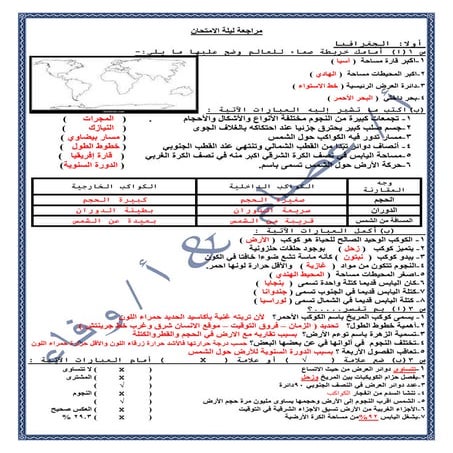 مراجعة ليلة الامتحان
أولا: الجغرافيا
س١ (أ) أمامك خريطة صماء للعالم وضح عليها ما يلي:-
١-أكبر قارة مساحة (أسيا)
٢-أكبر المحيطات مساحة (الهادي)
٣-دائرة العرض الرئيسية (خط الاستواء)
٤-بحر يدعي (البحر الأحمر)
(ب) اكتب ما تشير إليه العبارات الآتية :
١- تجمعات كبيرة من النجوم مختلفة الأنواع والأشكال والأحجام . (المجرات)
٢-جسم صلب كبير يحترق جزئيا عند احتكاكه بالغلاف الجوى (النيازك)
٣-مسار تدور فيه الكواكب حول الشمس (مسار بيضاوي)
٤- أنصاف دوائر تبدأ من القطب الشمالي وتنتهي عند القطب الجنوبي (خطوط الطول)
٥-مساحة اليابس في نصف الكرة الشرقي اكبر منه في نصف الكرة الغربي (قارة إفريقيا)
٦-حركة الأرض حول الشمس تسمى باسم. (الدورة السنوية)
وجه المقارنة الكواكب الداخلية الكواكب الخارجية
الحجم صغيرة الحجم كبيرة الحجم
الدوران سريعة الدوران بطيئة الدوران
المسافة من الشمس قريبة من الشمس بعيدة عن الشمس
(ب) أكمل العبارات الآتية :
١- الكوكب الوحيد الصالح للحياة هو كوكب (الأرض)
٢-يتميز كوكب (زحل) بوجود حلقات حلزونية
٣-يبدو كوكب (نبتون) كأنه ماسة تشع ضوءا خافتا في الكون
٤-النجوم تتكون من مواد (غازية) والأقل حرارة لونها احمر.
٥-أصغر المحيطات مساحة (المحيط الهندي)
٦-كان اليابس قديما كتلة واحدة تسمى (بنجايا)
٧-كتلة اليابس قديما في الجنوب تسمى (جندوانا)
٨- كتلة اليابس قديما في الشمال تسمى (لوراسيا)
س٣ (أ) بم تفسر.....؟
١-يسمى كوكب المريخ باسم الكوكب الأحمر؟ لأن تربته غنية بأكاسيد الحديد حمراء اللون
٢-أهمية خطوط الطول؟ تحديد (الزمان – فروق التوقيت – موقع الانسان شرق وغرب خط جرينتش)
٣-تسمية الزهرة باسم توءم الأرض؟ بسبب تقاربه مع الارض في الحجم والقطر والكتلة
٤-تختلف النجوم في ألوانها في عن بعضها البعض؟ حسب درجة حرارتها فالأشد حرارة زرقاء اللون والأقل حرارة حمراء اللون
٥-تعاقب الفصول الأربعة؟ بسبب الدورة السنوية للأرض حول الشمس
س٣ (ب) ضع علامة (√) أو علامة (×) أمام العبارات الآتية :
١-تتساوى دوائر العرض من حيث الاتساع (×) لا تتساوى
٢-يفصل حزام الكويكبات بين المريخ وزحل (×) المشترى
٣-عدد دوائر العرض في النصف الجنوبي ٩٠دائرة (√)
٤- تنشأ السدم من انفجار الكواكب (×) النجوم
٥- الشمس اقرب النجوم إلى الأرض وحجمها يساوى مليون مرة حجم الأرض (√)
٦-الأجزاء الغربية من الأرض تسبق الأجزاء الشرقية في التوقيت (×) العكس صحيح
٧-يشغل اليابس ٩٢% من مساحة الكرة الأرضية (×) ٢٩.٣ %